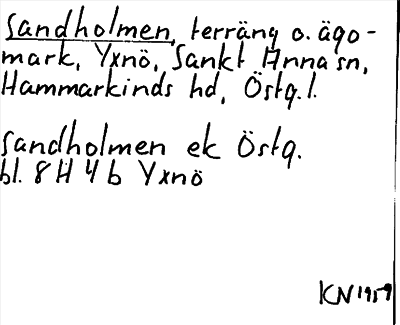 Sandholmen, terräng o. ägo-
mark, Yxnö, Sankt Anna sn,
Hammarkinds hd, Östg.l.
Sandholmen ek Östg.
bl. 8H 4b Yxnö
KN 1959